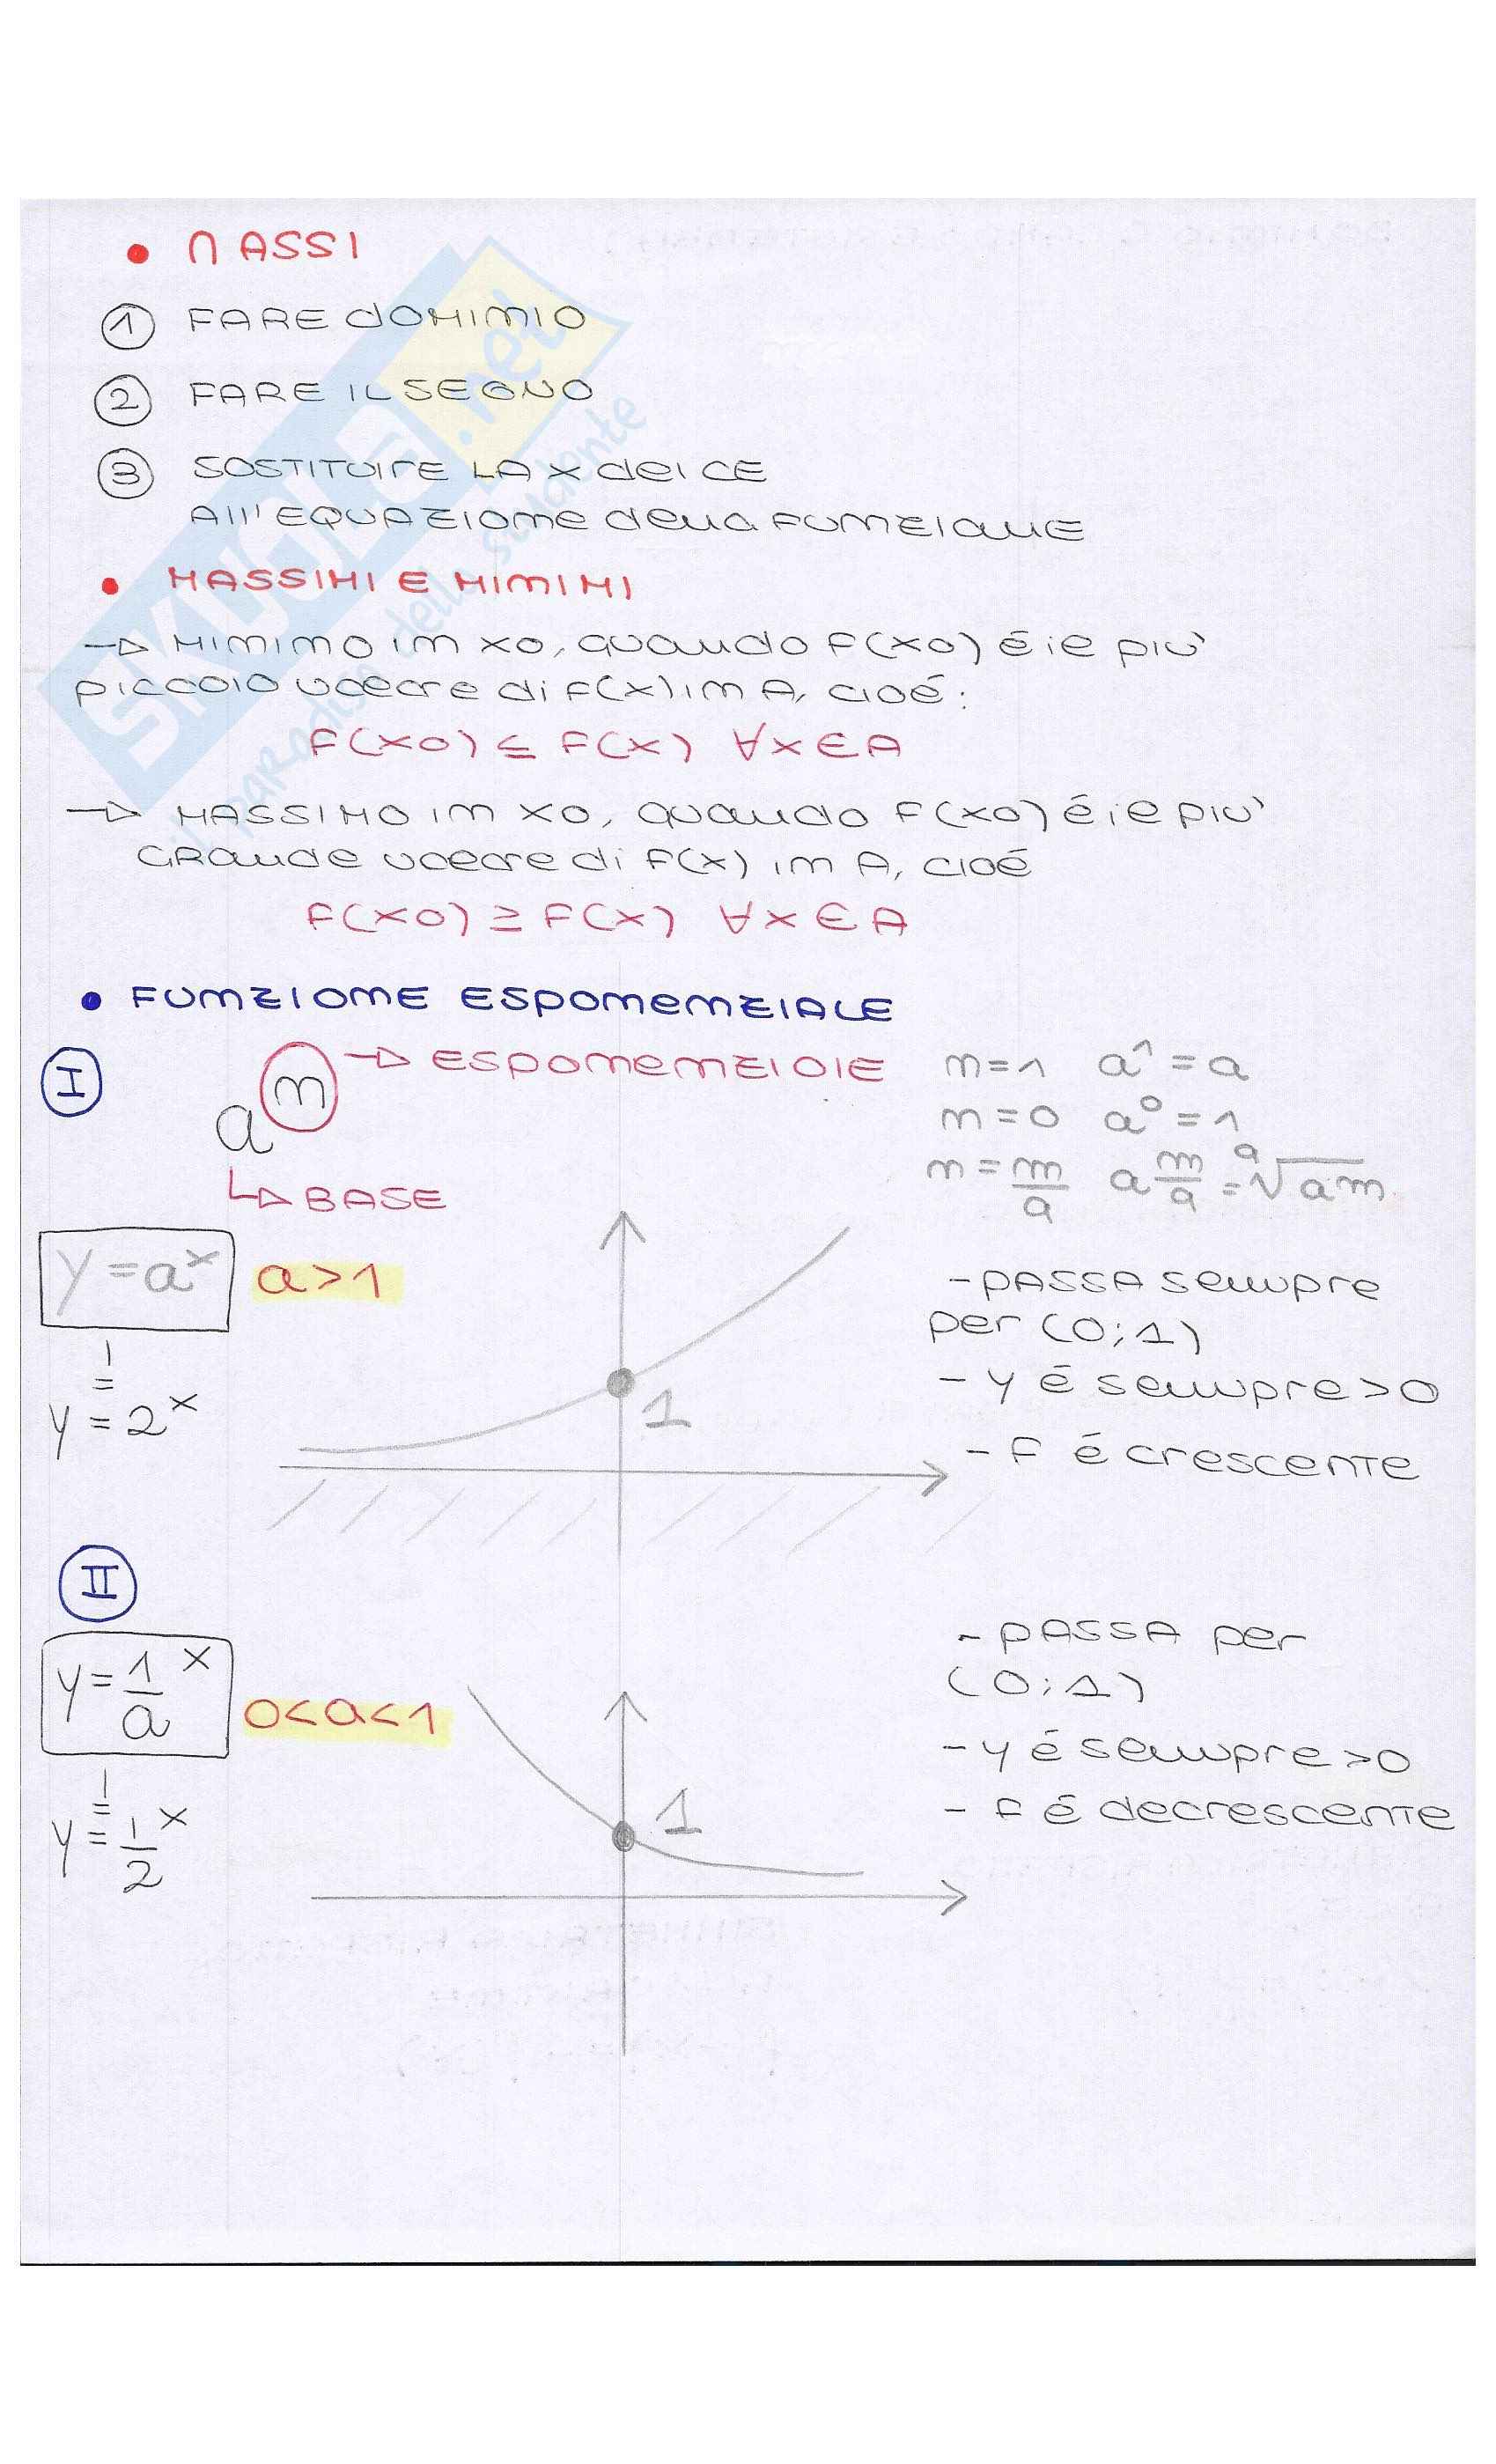 • ∩ ASSI
① FARE DOMINIO
② FARE IL SEGNO
③ SOSTITUIRE LA X del CE
All'EQUAZIONE della FUNZIONE
• MASSIMI E MINIMI
→ MINIMO IN x0, quando F(x0) é il più
piccolo valore di F(x) IN A, cioé:
F(x0) ≤ F(x) ∀x∈A
→ MASSIMO IN x0, quando F(x0) é il più
GRANDE valore di F(x) IN A, cioé
F(x0) ≥ F(x) ∀x∈A
• FUNZIONE ESPONENZIALE
I
a^n → ESPONENZIALE
↳ BASE
n=1 a^1=a
n=0 a^0=1
n=m/a a m/a = a√am
y=a^x a>1
y=2^x
1
- PASSA sempre
per (0;1)
- y é sempre >0
- F é crescente
II
y=1/a^x 0<a<1
y=1/2^x
1
- PASSA per
(0;1)
- y é sempre >0
- F é decrescente
SKUOLA.net
il paradiso dello studente